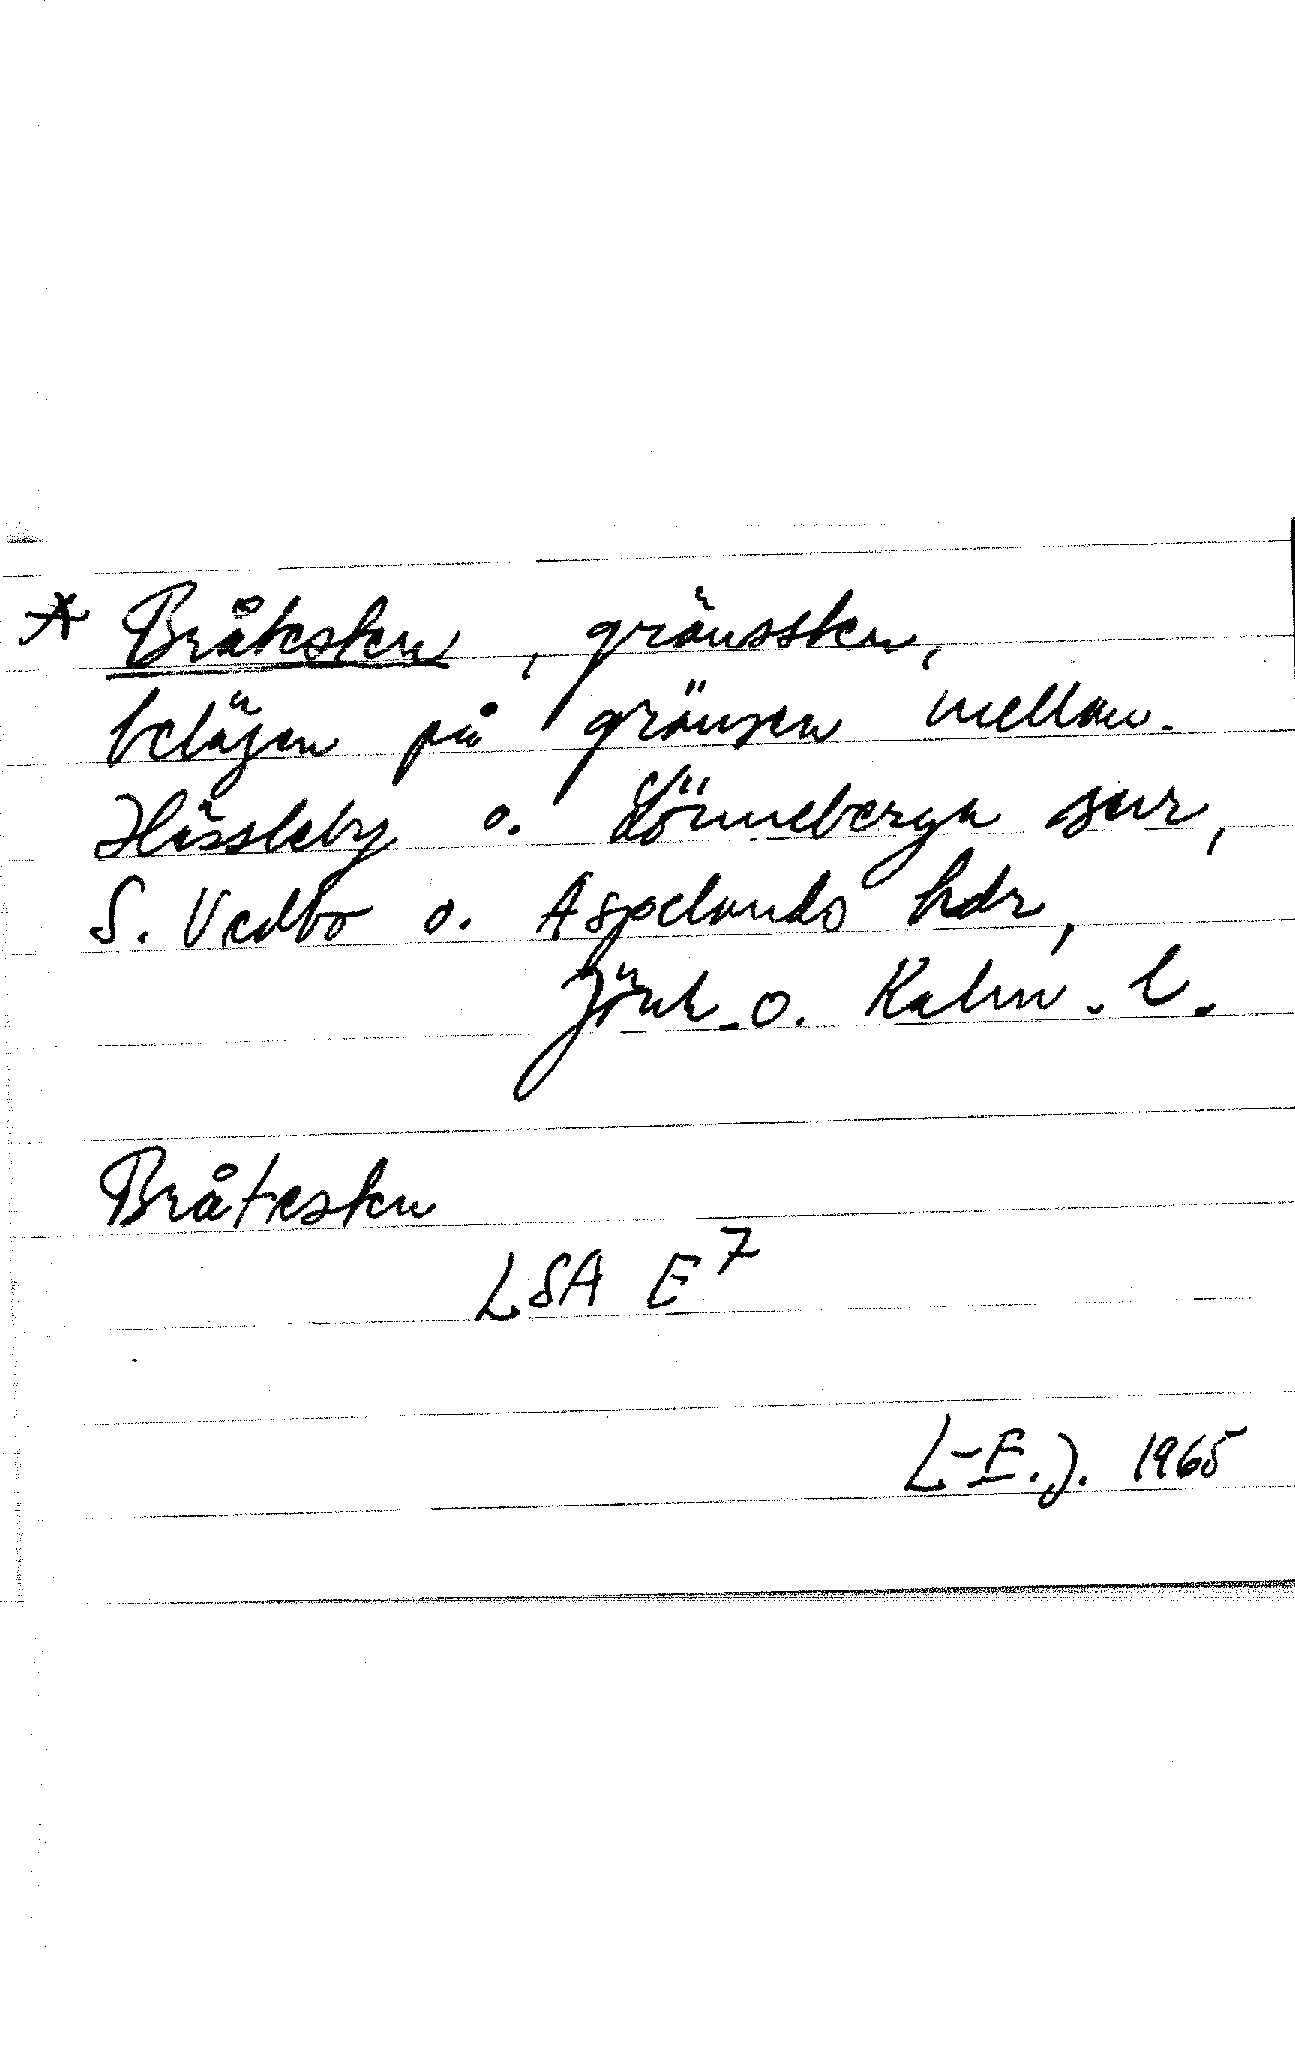 * Bråtesten, gränssten,
belägen på gränsen mellan
Hässleby o. Lönneberga snr,
S. Vedbo o. Aspelands hdr,
Jönk. o. Kalm. l.
Bråtesten
LSA E7
L-E.J. 1965